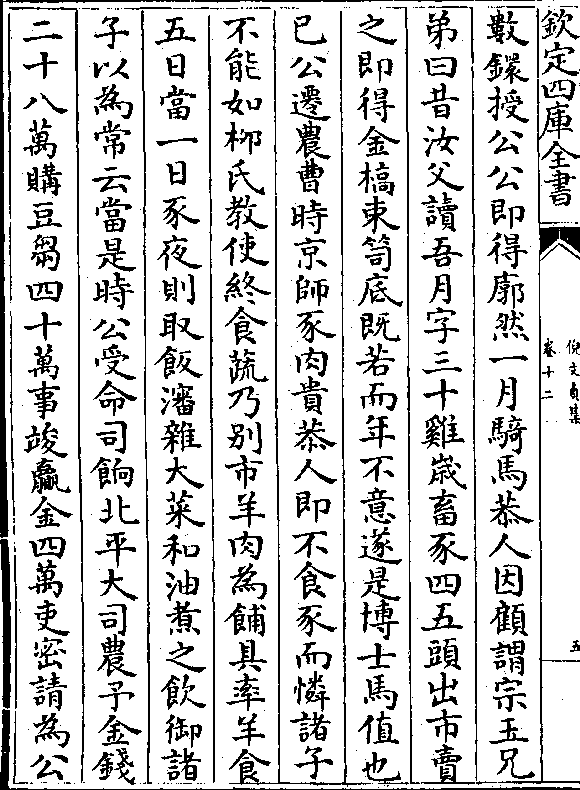 欽定四庫全書
倪文貞集
卷十二
五
數鐶授公公即得廓然一月騎馬恭人因顧謂宗玉兄
弟曰昔汝父讀吾月字三十雞歲畜豕四五頭出市賣
之即得金槁束笥底既若而年不意遂是博士馬值也
已公遷農曹時京師豕肉貴恭人即不食豕而憐諸子
不能如柳氏教使終食蔬乃别市羊肉為餔具率羊食
五日當一日豕夜則取飯瀋雜大菜和油煮之飲御諸
子以為常云當是時公受命司餉北平大司農予金錢
二十八萬購豆芻四十萬事竣羸金四萬吏密請為公